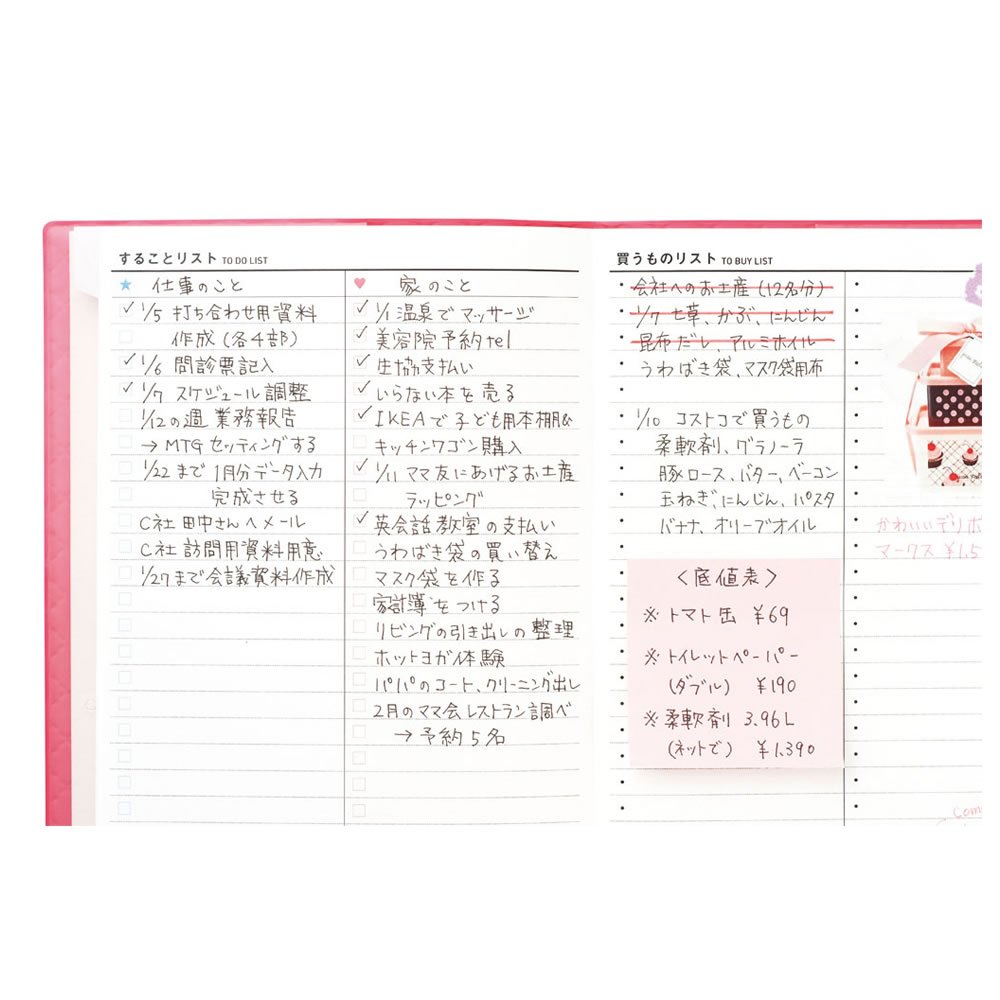 することリスト TO DO LIST
★ 仕事のこと
✓ 1/5 打ち合わせ用資料
作成(各4部)
✓ 1/6 問診票記入
✓ 1/7 スケジュール調整
1/12の週 業務報告
→ MTGセッティングする
1/22まで 1月分データ入力
完成させる
C社 田中さんへメール
C社 訪問用資料用意
1/27まで会議資料作成
♥ 家のこと
✓ 1/1 温泉でマッサージ
✓ 美容院予約tel
✓ 生協支払い
✓ いらない本を売る
✓ IKEAで子ども用本棚&
キッチンワゴン購入
✓ 1/11 ママ友にあげるお土産
ラッピング
✓ 英会話教室の支払い
うわばき袋の買い替え
マスク袋を作る
家計簿をつける
リビングの引き出しの整理
ホットヨガ体験
パパのコート、クリーニング出し
2月のママ会レストラン調べ
→ 予約5名
買うものリスト TO BUY LIST
会社へのお土産(12名分)
1/7 七草、かぶ、にんじん
昆布だし、アルミホイル
うわばき袋、マスク袋用布
1/10 コストコで買うもの
柔軟剤、グラノーラ
豚ロース、バター、ベーコン
玉ねぎ、にんじん、パスタ
バナナ、オリーブオイル
<底値表>
※ トマト缶 ¥69
※ トイレットペーパー
(ダブル) ¥190
※ 柔軟剤 3.96L
(ネットで) ¥1,390
かわいいデリボ
マークス ¥1,5
Com